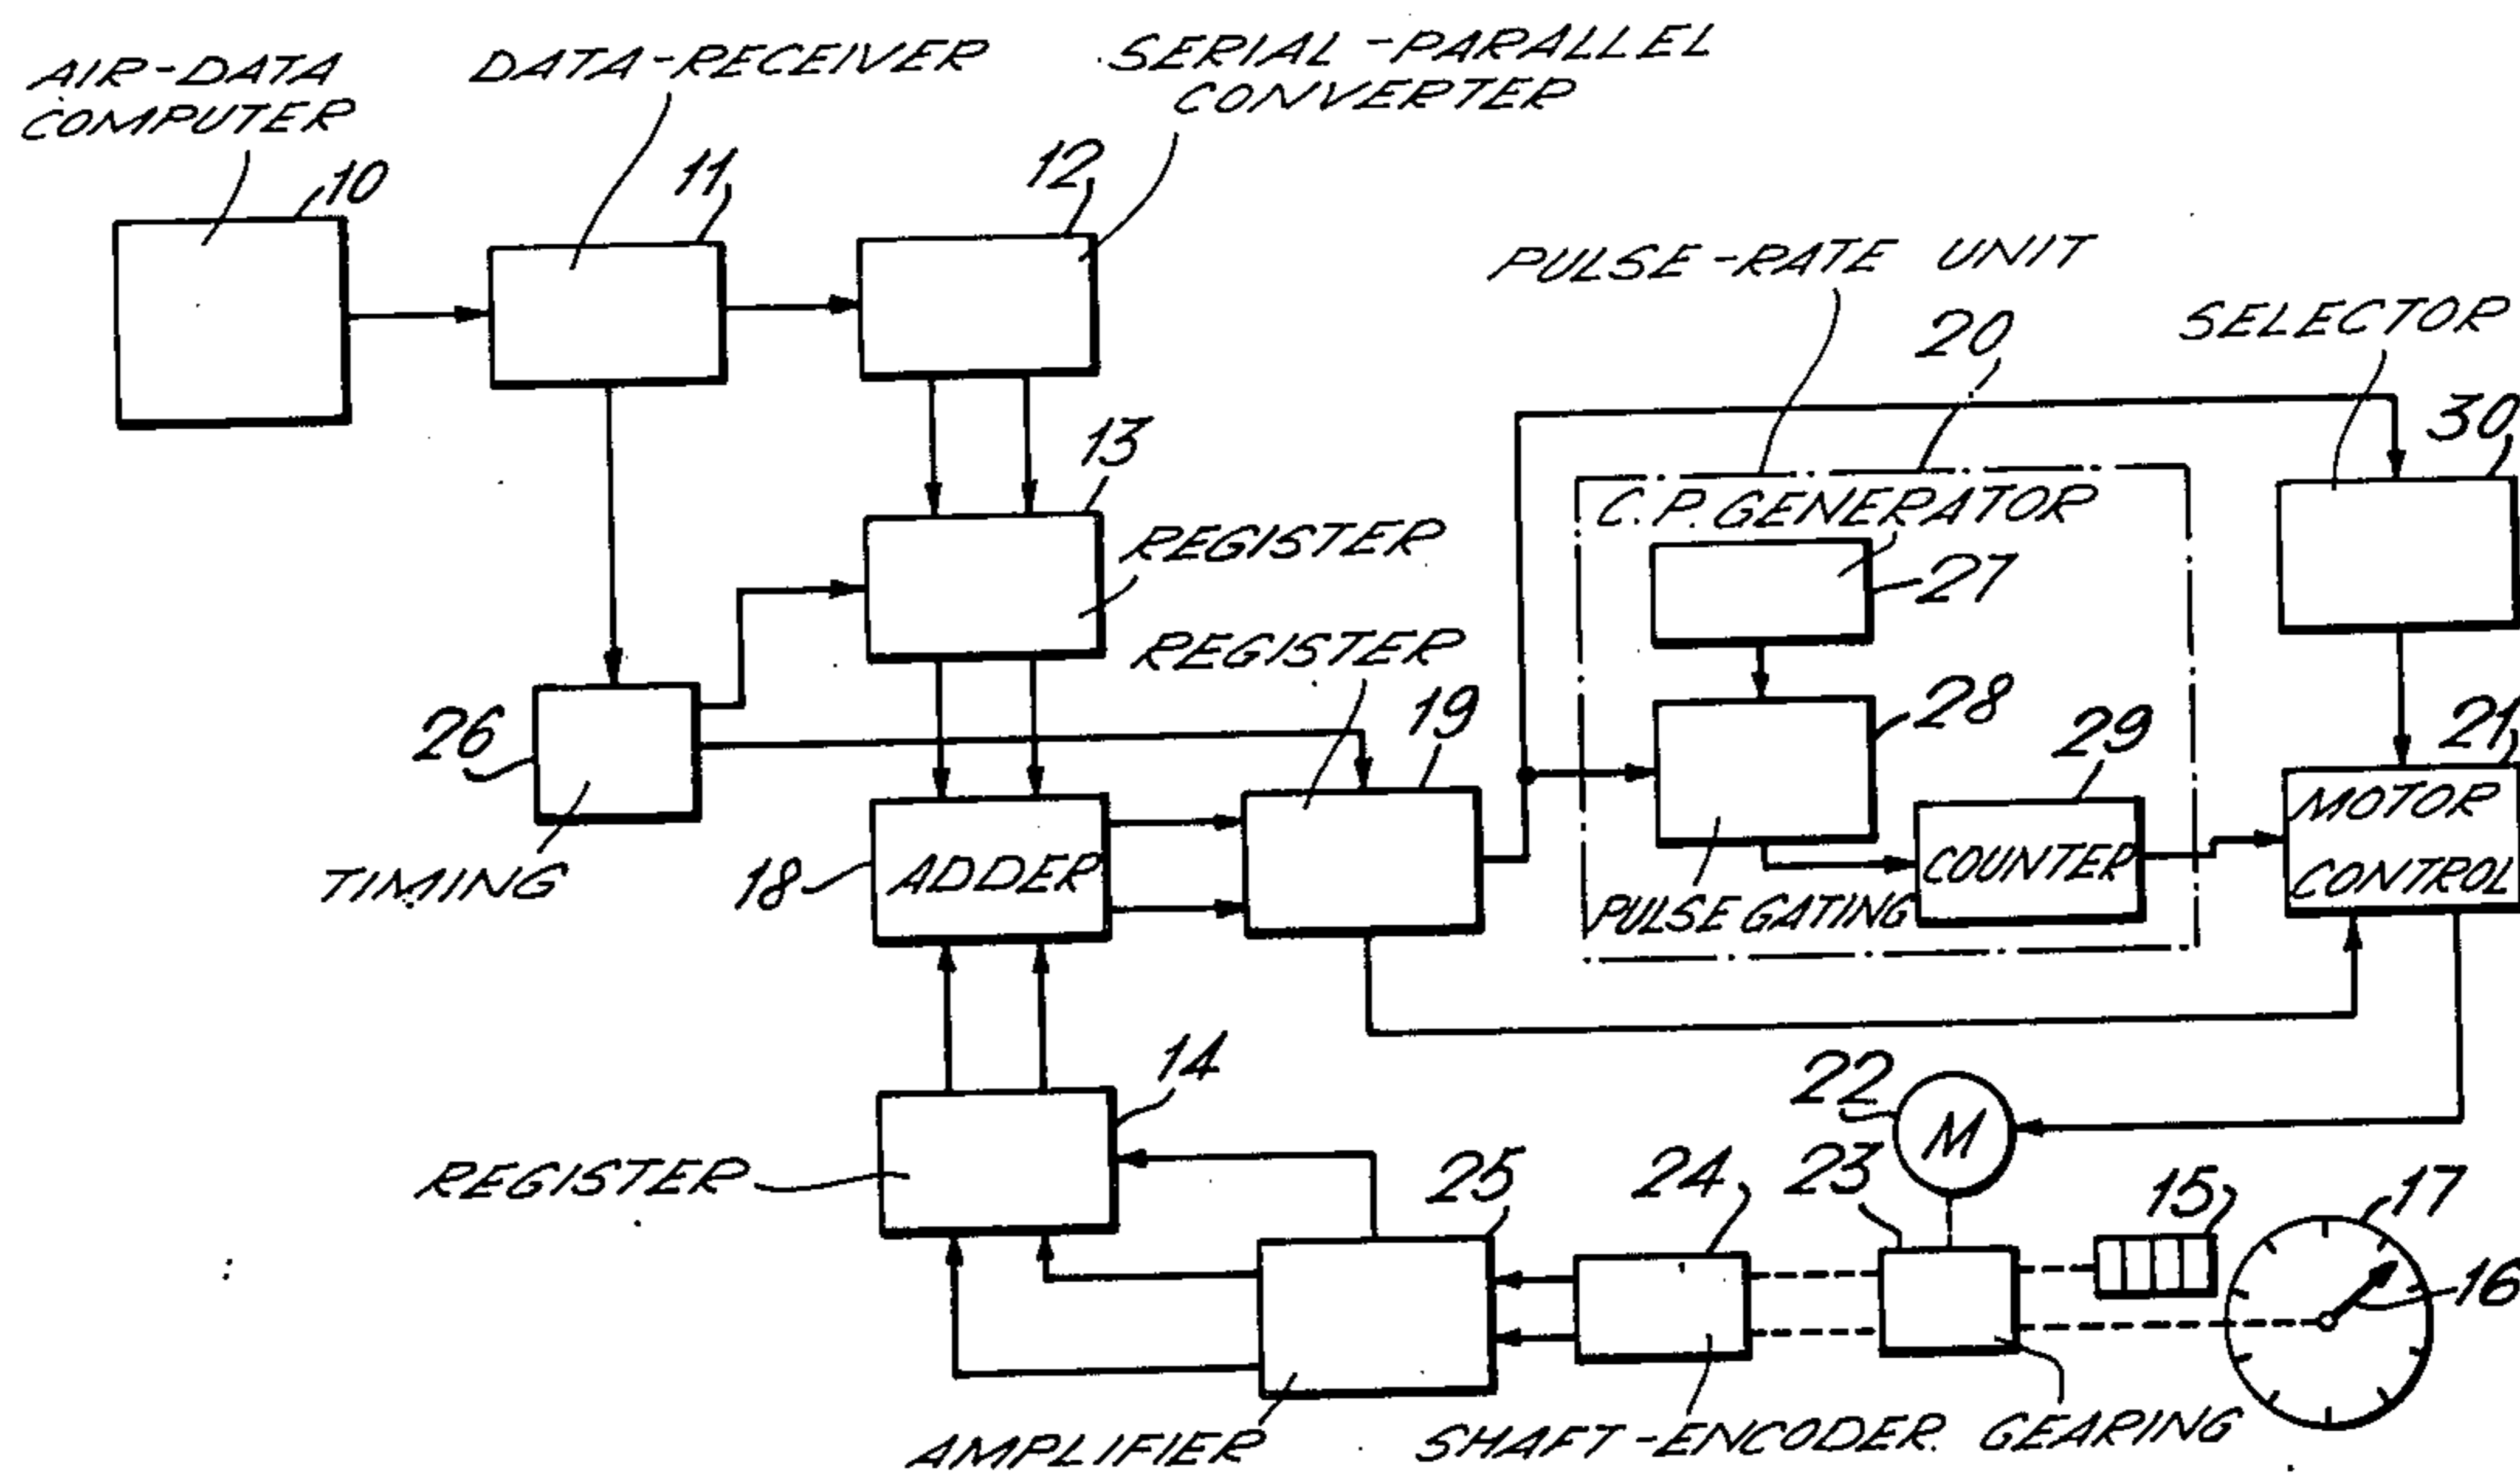 AIR-DATA
COMPUTER
DATA-RECEIVER
SERIAL-PARALLEL
CONVERTER
10
11
12
PULSE-RATE UNIT
20
SELECTOR
30
13
REGISTER
C.P. GENERATOR
27
REGISTER
26
19
28
29
21
TIMING
18
ADDER
PULSE GATING
COUNTER
MOTOR
CONTROL
14
22
M
REGISTER
25
24
23
15
17
16
AMPLIFIER
SHAFT-ENCODER
GEARING